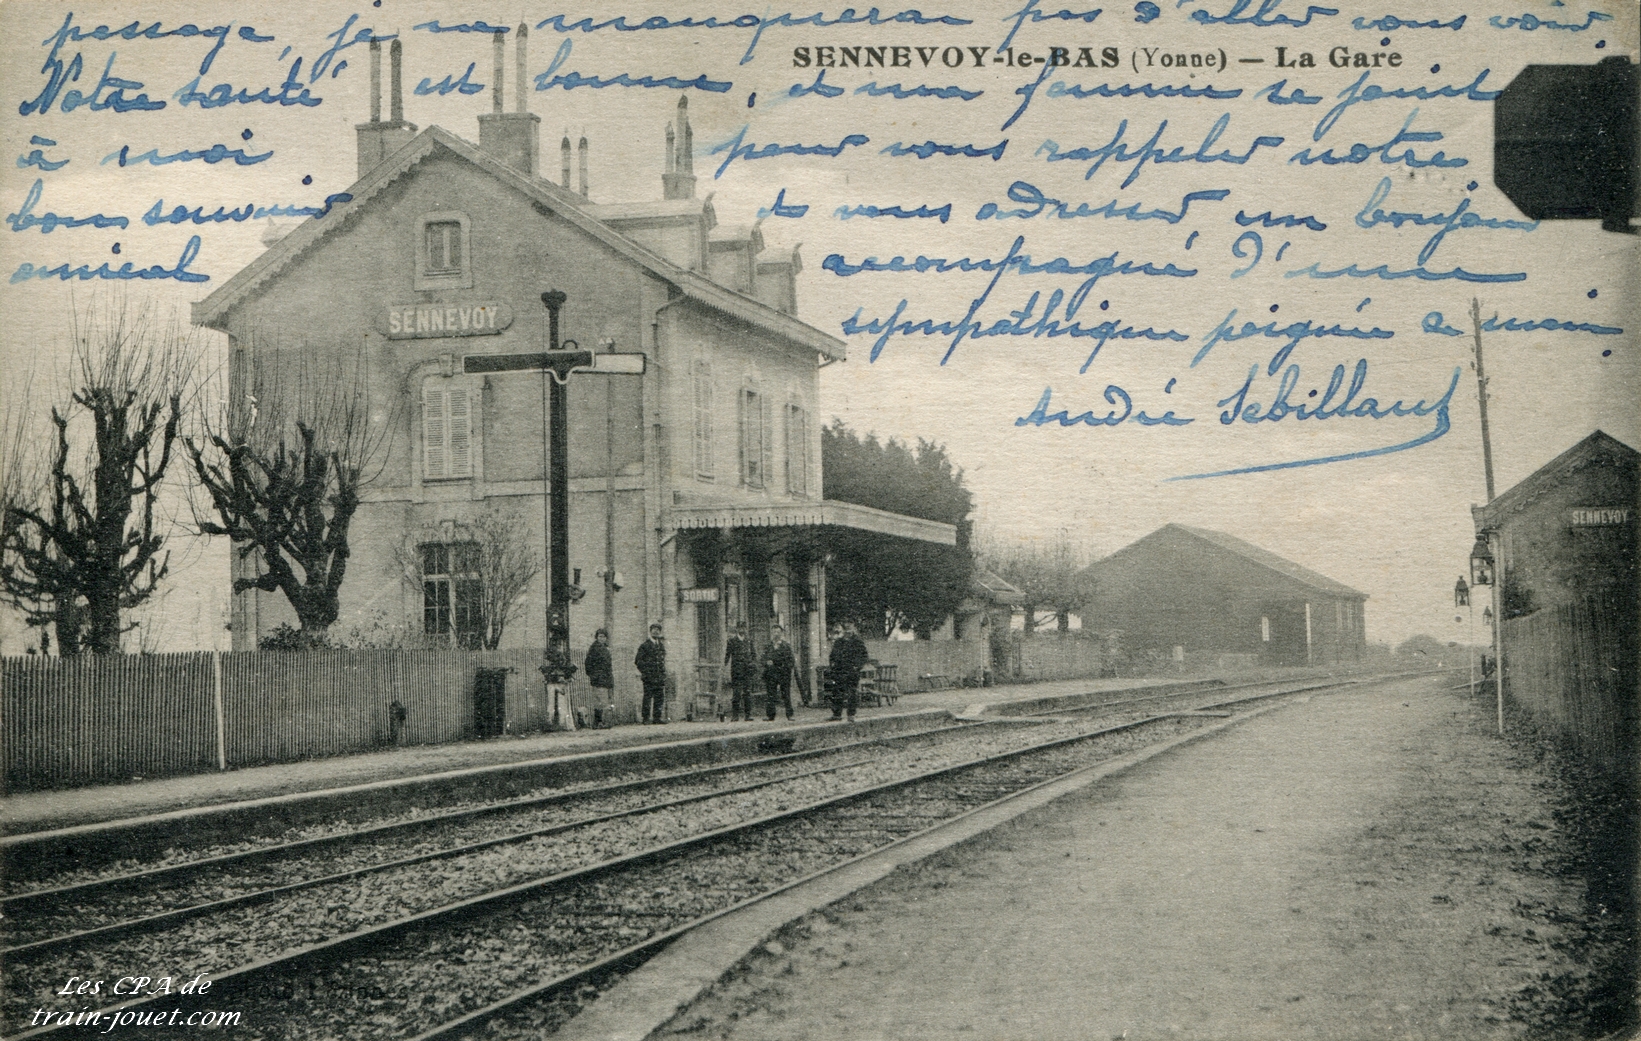 passage, je ne manquerai pas d'aller vous voir.
SENNEVOY-le-BAS (Yonne) — La Gare
Notre santé est bonne, et ma femme se joint
à moi pour vous rappeler notre
bon souvenir et vous adresser un bonjour
amical accompagné d'une
sympathique poignée de main.
André Sebillaut
SENNEVOY
SENNEVOY
SORTIE
Les CPA de
train-jouet.com